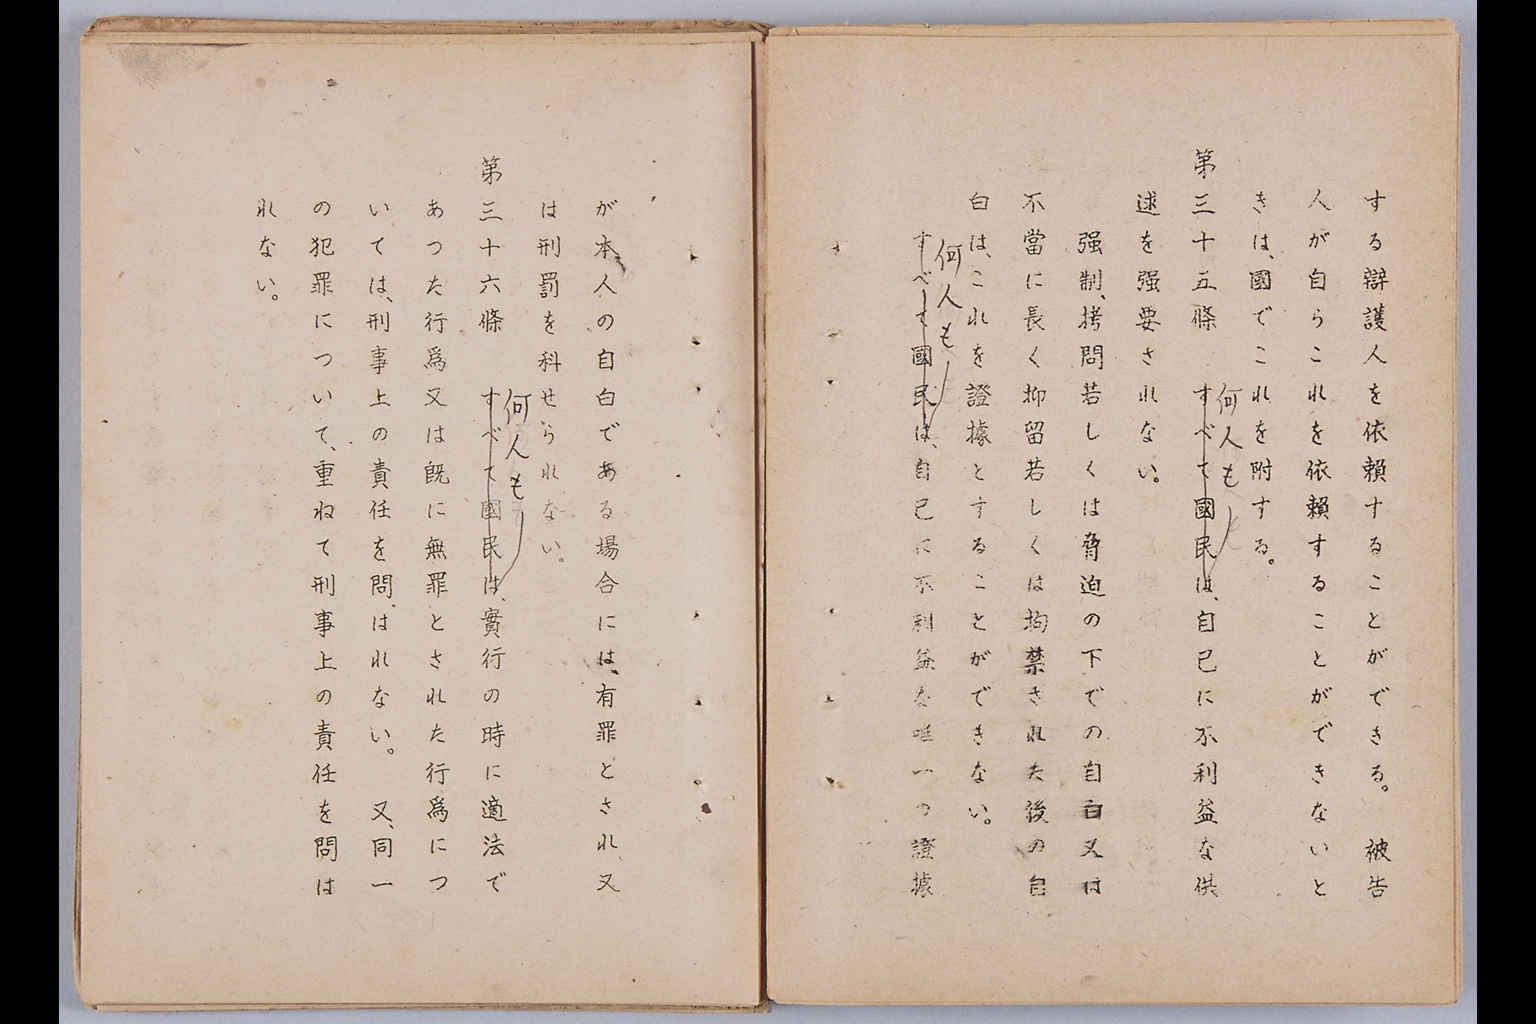 する辯護人を依賴することができる。　被告
人が自らこれを依賴することができないと
きは、國でこれを附する。
第三十五條　すべて國民は、自己に不利益な供
何人も
述を强要されない。
强制、拷問若しくは脅迫の下での自白又は
不當に長く抑留若しくは拘禁された後の自
白は、これを證據とすることができない。
何人も
すべて國民は、自己に不利益な唯一の證據
が本人の自白である場合には、有罪とされ、又
は刑罰を科せられない。
第三十六條　すべて國民は、實行の時に適法で
何人も
あつた行爲又は既に無罪とされた行爲につ
いては、刑事上の責任を問はれない。　又、同一
の犯罪について、重ねて刑事上の責任を問は
れない。